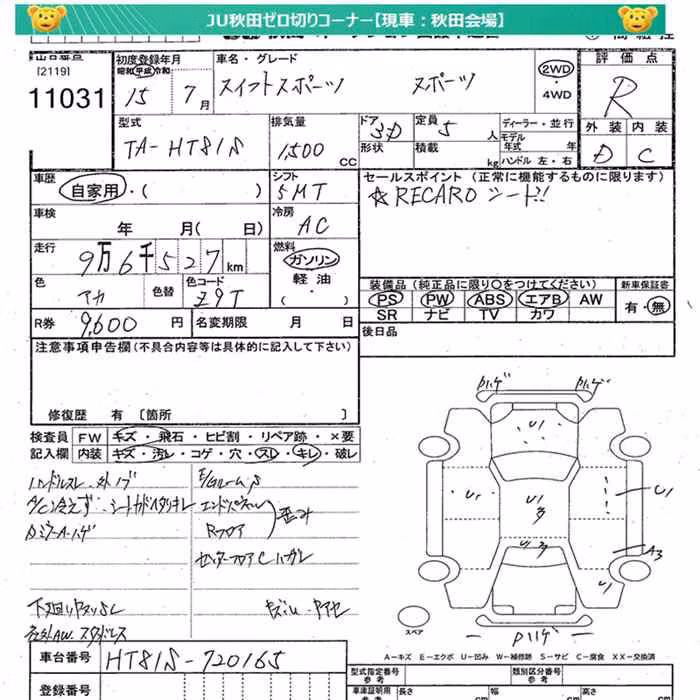 JU秋田ゼロ切りコーナー【現車：秋田会場】
[2119]
11031
初度登録年月
昭和 平成 令和
15年 7月
車名・グレード
スイフトスポーツ スポーツ
2WD
・
4WD
評価点
R
外装 内装
D C
型式
TA-HT81S
排気量
1,500 CC
ドア 3D
形状
定員 5人
積載 kg
ディーラー・並行
モデル
年式 年
ハンドル 左・右
車歴
自家用・( )
シフト
5MT
セールスポイント (正常に機能するものに限ります)
☆RECAROシート!!
車検
年 月( 日)
冷房
AC
走行
9万6千527km
燃料
ガソリン
軽油
・( )
色
アカ
色替
色コード
Z9T
装備品 (純正品に限り○をつけてください)
PS PW ABS エアB AW
SR ナビ TV カワ
新車保証書
有・無
R券 9,600円
名変期限 月 日
後日品
注意事項申告欄 (不具合内容等は具体的に記入して下さい)
修復歴 有 [箇所 ]
検査員
記入欄
FW キズ・飛石・ヒビ割・リペア跡・×要
内装 キズ・汚レ・コゲ・穴・スレ・キレ・破レ
ハンドルスレ
エンドパネル
Rフロア
歪み
センターフロア
下廻り
社外AW. スタッドレス
U1
A3
スペア
A－キズ E－エクボ U－凹み W－補修跡 S－サビ C－腐食 XX－交換済
車台番号 HT81S-720165
登録番号
型式指定番号
類別区分番号
車庫証明用
長さ cm
幅 cm
高さ cm